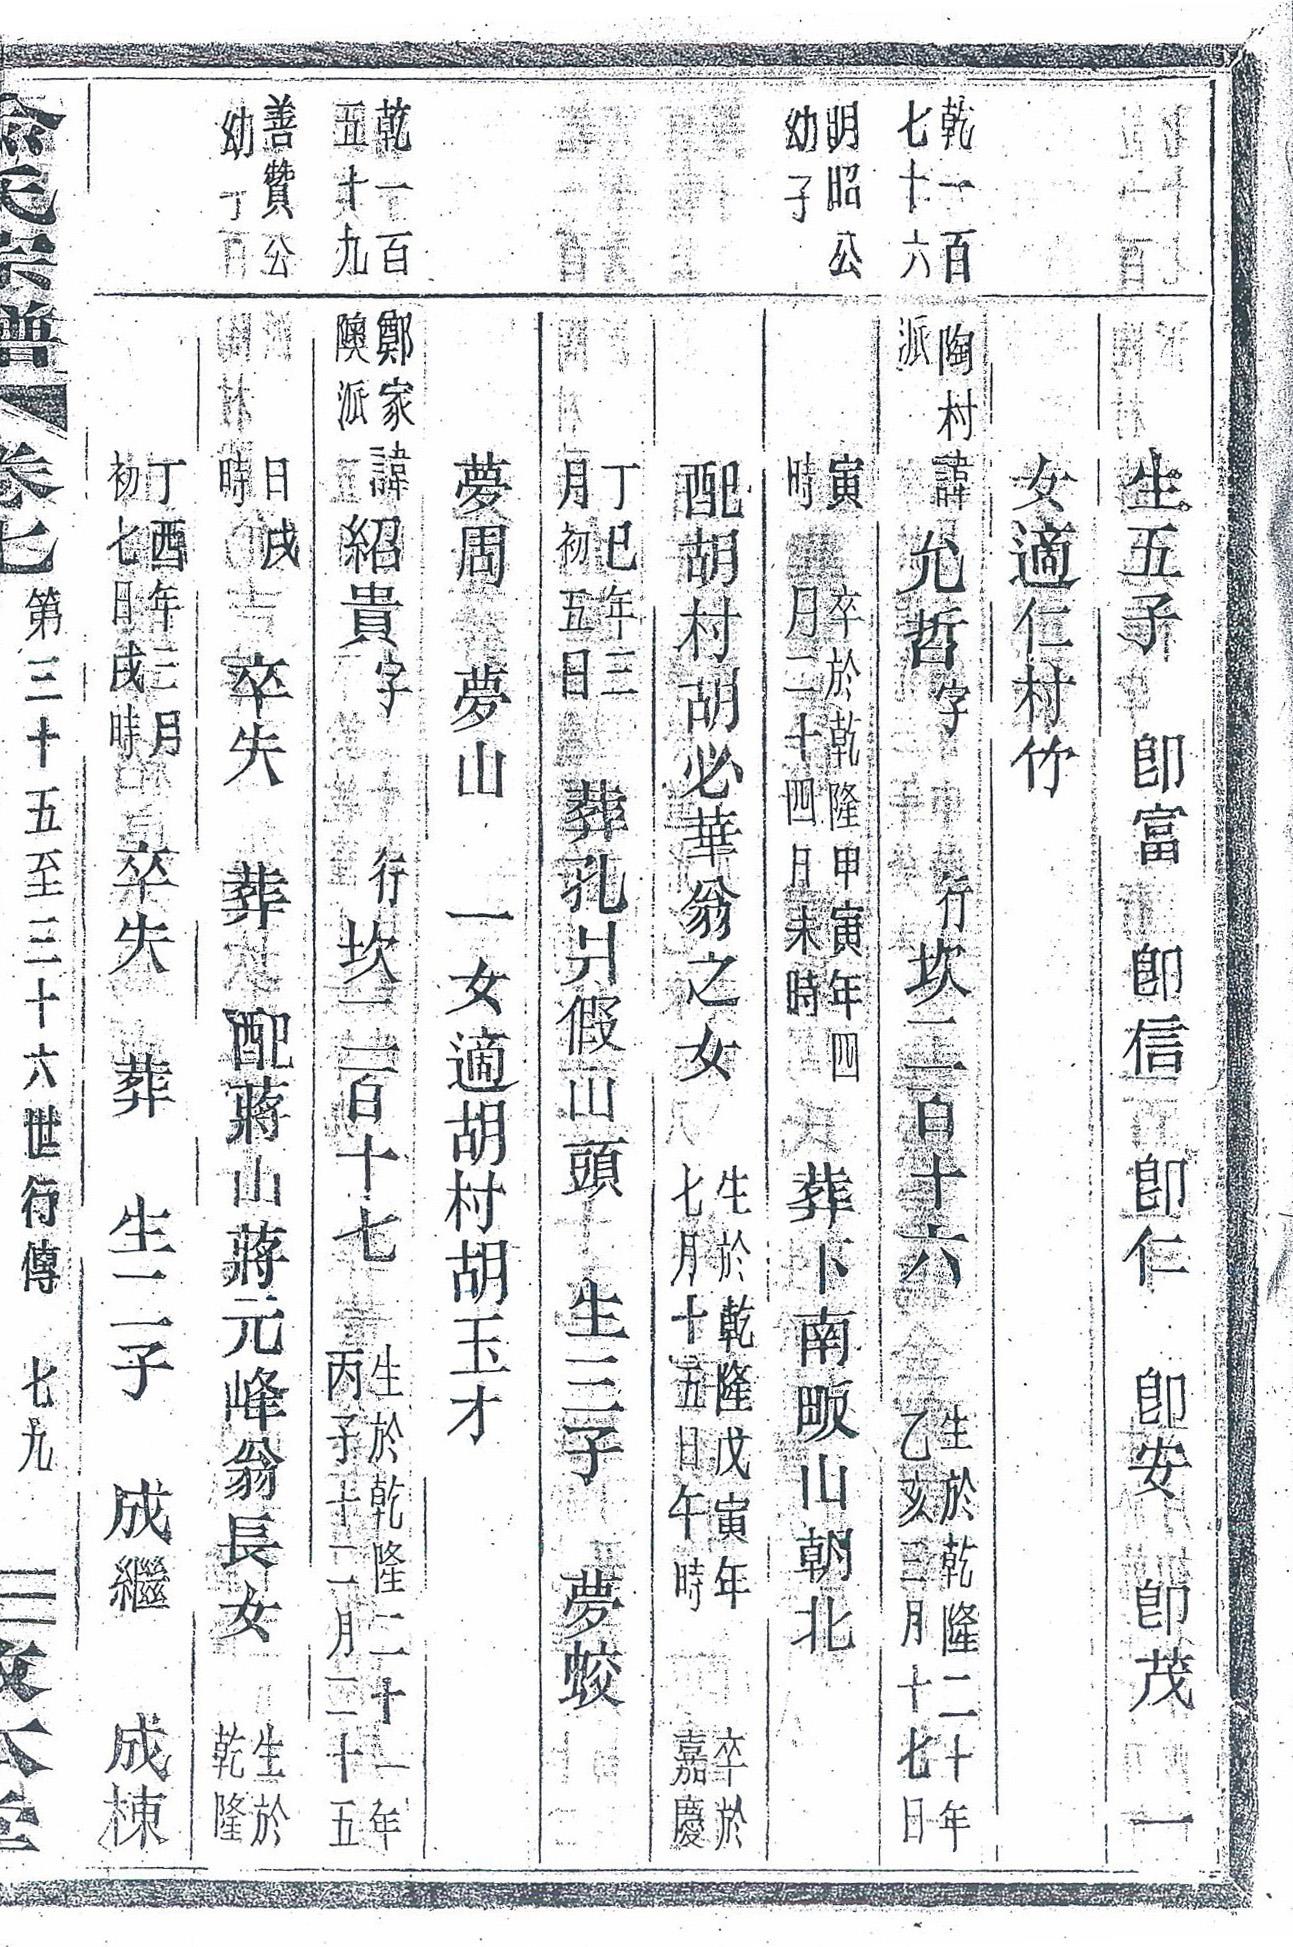 生五子 卽富 卽信 卽仁 卽安 卽茂 一
女適仁村竹
乾一百
七十六
陶村
派
諱允哲字 行坎二百十六 生於乾隆二十年
乙亥三月十七日
明昭公
幼子
寅
時
卒於乾隆甲寅年四
月二十四日未時
葬下南畈山朝北
配胡村胡必華翁之女 生於乾隆戊寅年
七月十五日午時
卒於
嘉慶
丁巳年三
月初五日
葬孔爿假山頭 生三子 夢蛟
夢周 夢山 一女適胡村胡玉才
乾一百
五十九
鄭家
隩派
諱紹貴字 行坎二百十七 生於乾隆二十一年
丙子十二月二十五
善贊公
幼子
日戌
時
卒失 葬 配蔣山蔣元峰翁長女 生於
乾隆
丁酉年三月
初七日戌時
卒失 葬 生二子 成繼 成棟
氏宗譜 卷七 第三十五至三十六世行傳 七九 三敬本堂